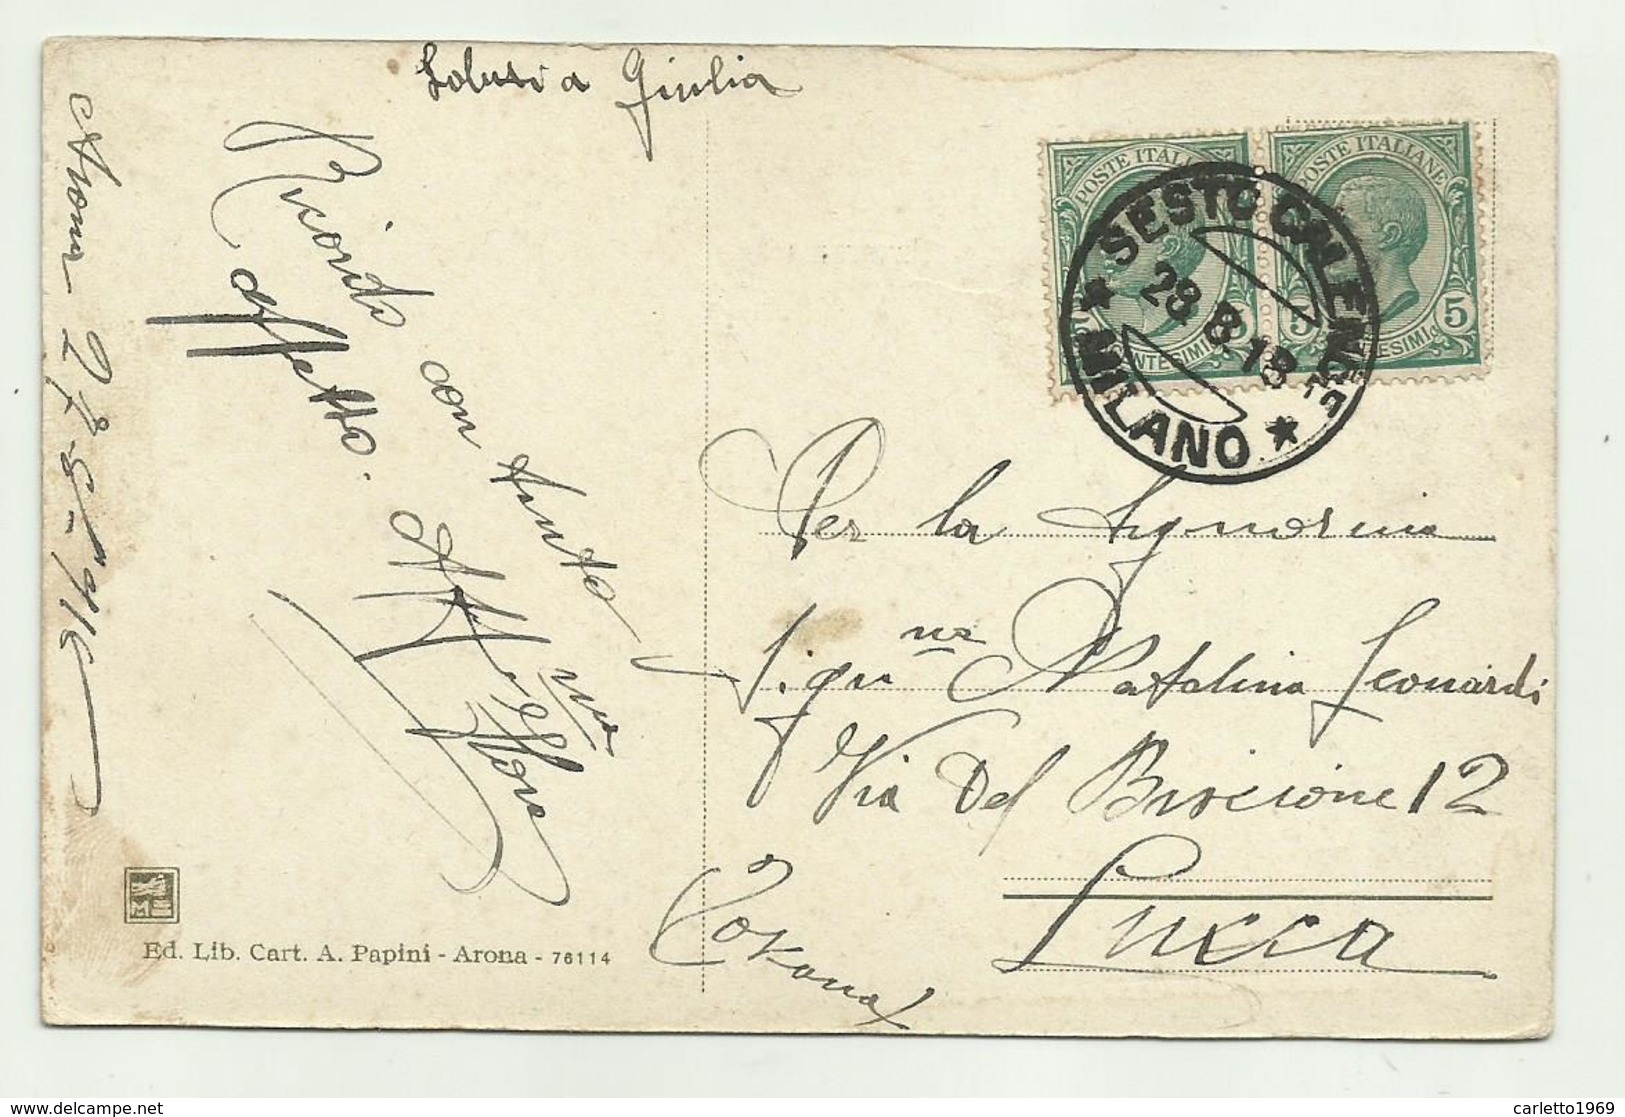 Saluti a Giulia
Arona 27-8-916
Ricordo con tanto
affetto.
POSTE ITALIANE
POSTE ITALIANE
CENTESIMI
5
CENTESIMI 5
SESTO CALENDE
28.8.18
MILANO
Per la Signorina
Natalina Leonardi
Via Del Biscione 12
Lucca
Toscana
Ed. Lib. Cart. A. Papini - Arona - 76114
delcampe.net
carletto1969